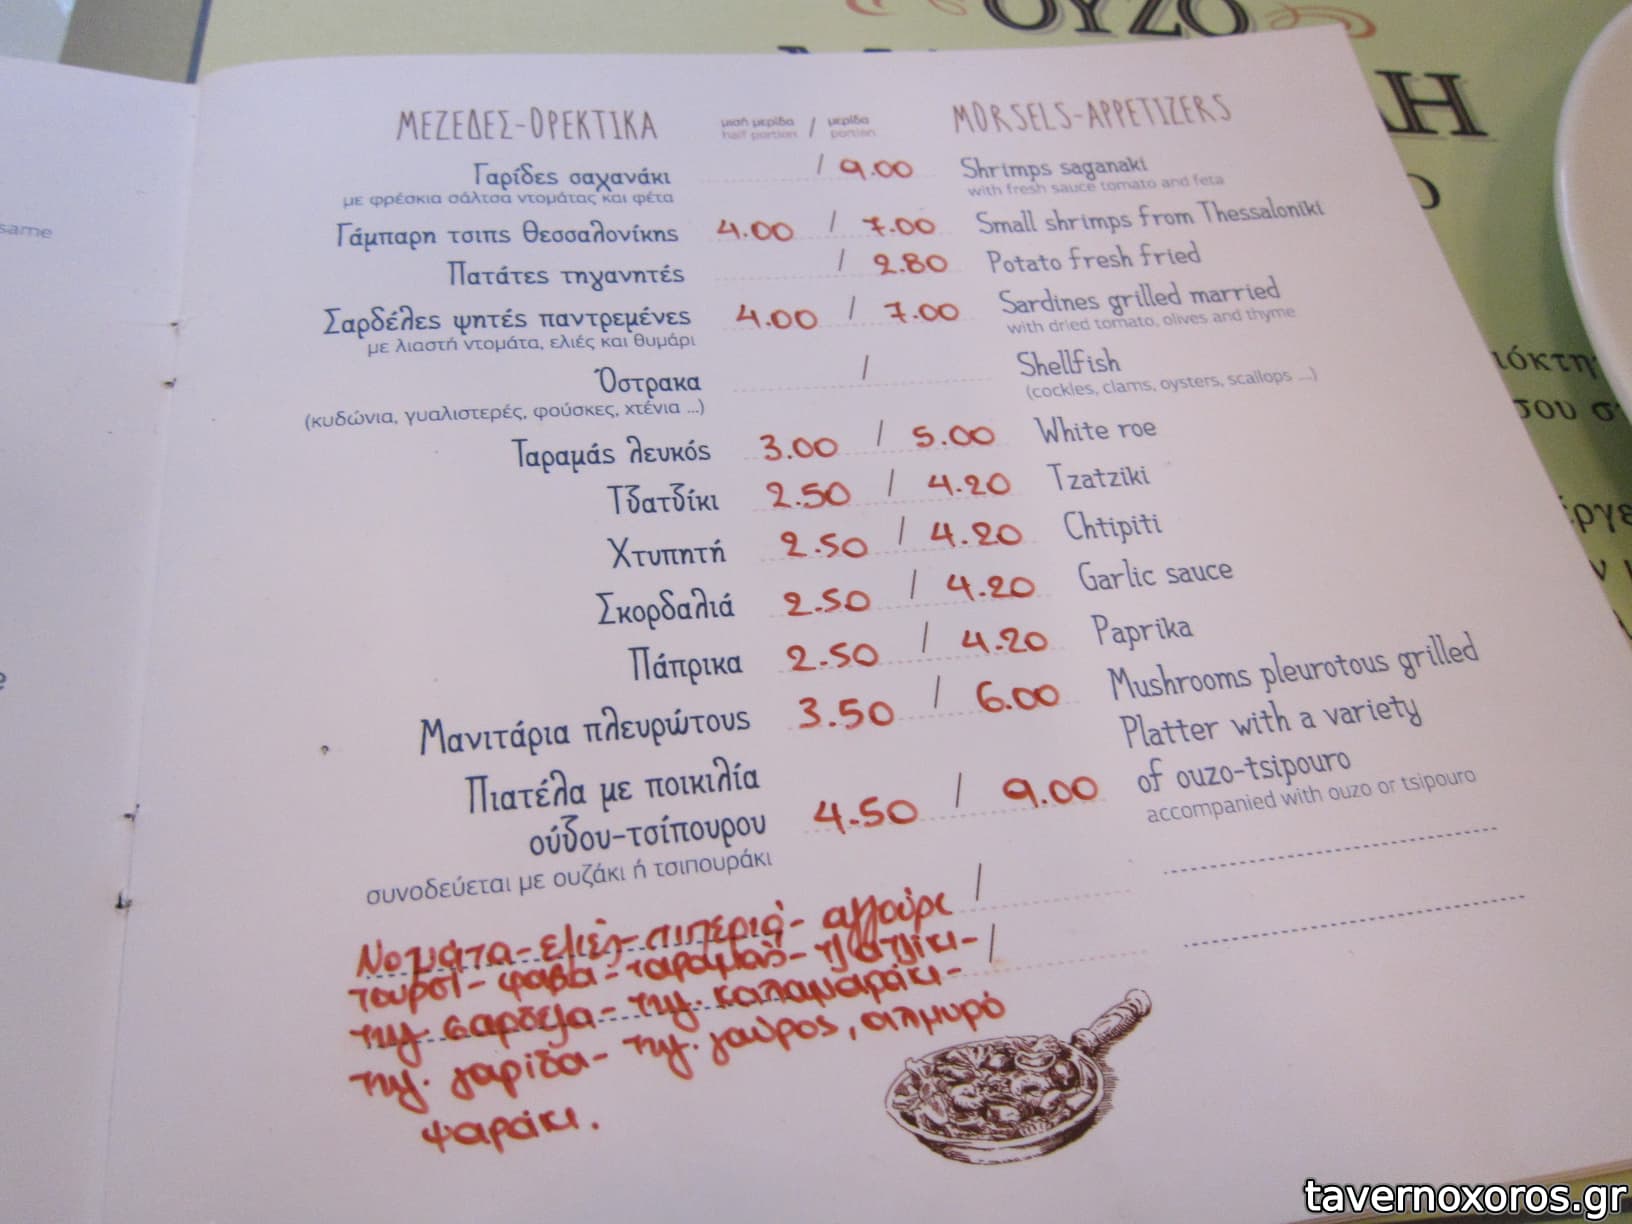 ΟΥΖΟ
ΜΕΖΕΔΕΣ-ΟΡΕΚΤΙΚΑ μισή μερίδα / μερίδα MORSELS-APPETIZERS
half portion portion
Γαρίδες σαχανάκι / 9.00 Shrimps saganaki
με φρέσκια σάλτσα ντομάτας και φέτα with fresh sauce tomato and feta
Γάμπαρη τσιπς Θεσσαλονίκης 4.00 / 7.00 Small shrimps from Thessaloniki
Πατάτες τηγανητές / 2.80 Potato fresh fried
Σαρδέλες ψητές παντρεμένες 4.00 / 7.00 Sardines grilled married
με λιαστή ντομάτα, ελιές και θυμάρι with dried tomato, olives and thyme
Όστρακα / Shellfish
(κυδώνια, γυαλιστερές, φούσκες, χτένια ...) (cockles, clams, oysters, scallops ...)
Ταραμάς λευκός 3.00 / 5.00 White roe
Τζατζίκι 2.50 / 4.20 Tzatziki
Χτυπητή 2.50 / 4.20 Chtipiti
Σκορδαλιά 2.50 / 4.20 Garlic sauce
Πάπρικα 2.50 / 4.20 Paprika
Μανιτάρια πλευρώτους 3.50 / 6.00 Mushrooms pleurotous grilled
Πιατέλα με ποικιλία Platter with a variety
ούζου-τσίπουρου 4.50 / 9.00 of ouzo-tsipouro
συνοδεύεται με ουζάκι ή τσιπουράκι accompanied with ouzo or tsipouro
Ντομάτα-ελιές-πιπεριά-αγγούρι /
τουρσί-φάβα-ταραμάς-τζατζίκι- /
τηγ. σαρδέλα-τηγ. καλαμαράκι-
τηγ. γαρίδα-τηγ. γαύρος, αλμυρό
ψαράκι.
same
ΛΗ
Ο
ιόκτη
σου σ
έργε
tavernoxoros.gr